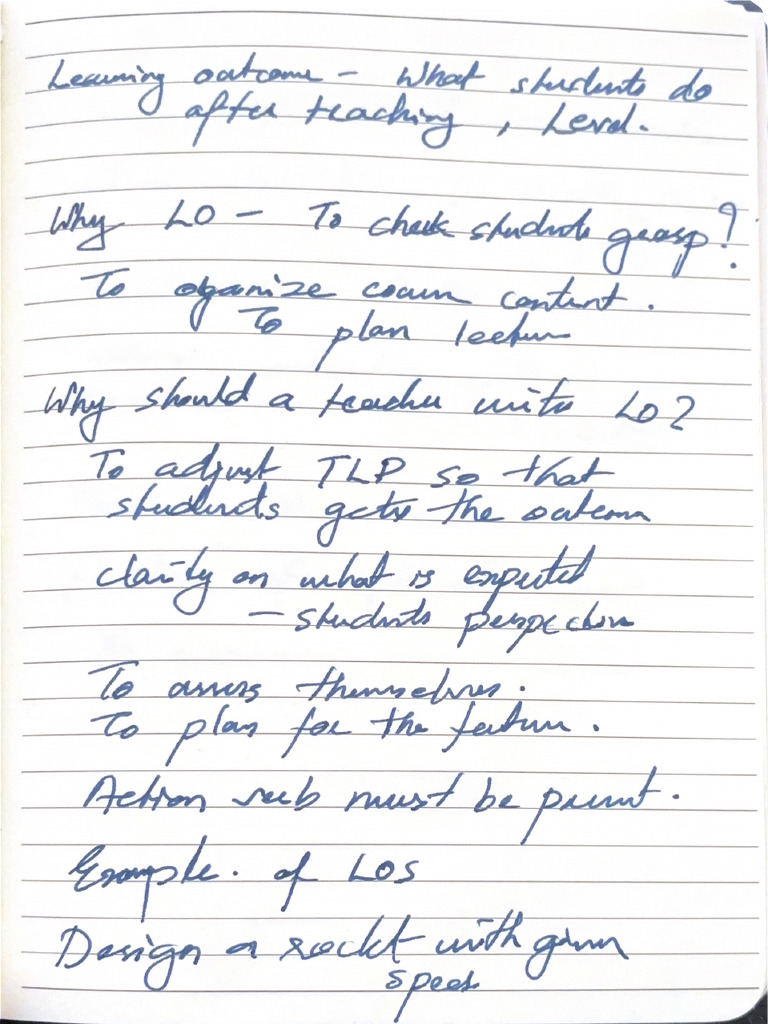 Learning outcome – What students do
after teaching, Level.
Why LO – To check students grasp?
To oganize course content.
To plan lecture
Why should a teacher write LO?
To adjust TLP so that
students gets the outcome
clarity on what is expected
– students perspective
To assess themselves.
To plan for the future.
Action verb must be present.
Example. of LOs
Design a rocket with given
specs